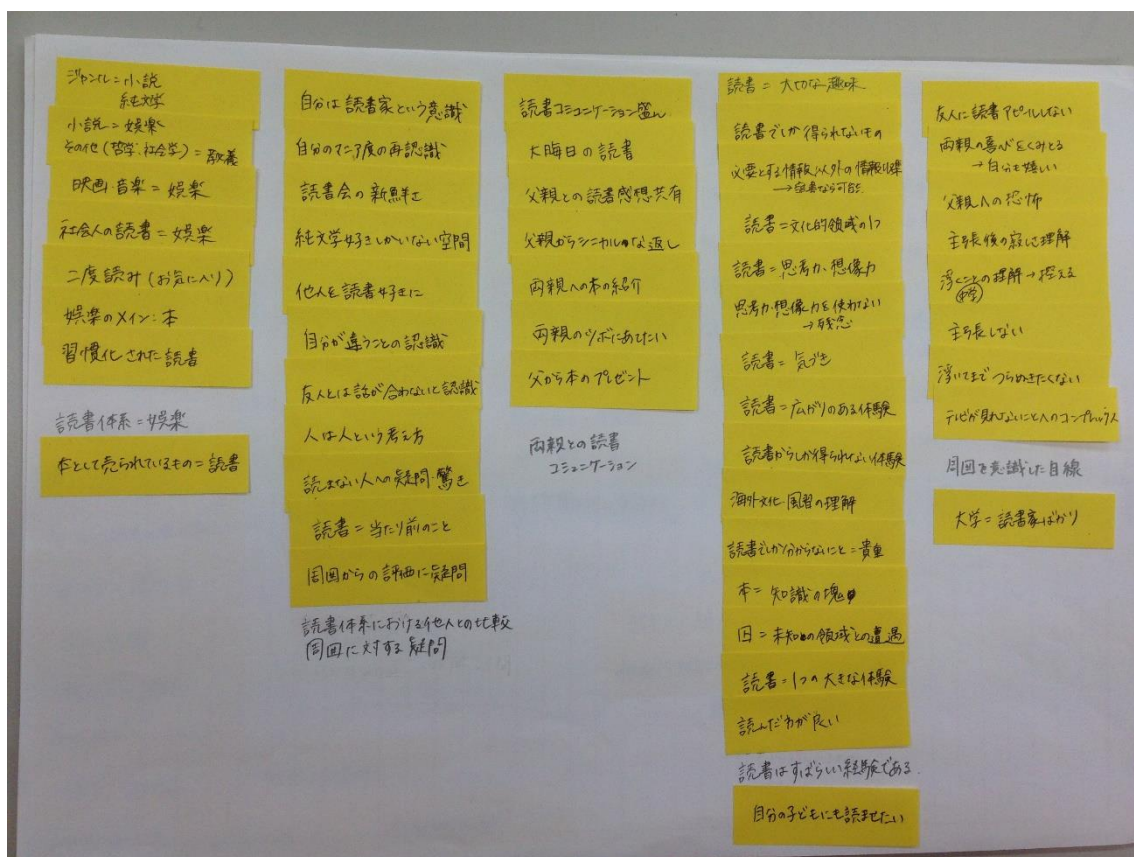 ジャンル=小説
純文学
小説=娯楽
その他(哲学・社会学)=教養
映画・音楽=娯楽
社会人の読書=娯楽
二度読み(お気に入り)
娯楽のメイン:本
習慣化された読書
読書体系=娯楽
本として売られているもの=読書
自分は読書家という意識
自分のマニア度の再認識
読書会の新鮮さ
純文学好きしかいない空間
他人を読書好きに
自分が違うことの認識
友人とは話が合わないと認識
人は人という考え方
読まない人への疑問・驚き
読書=当たり前のこと
周囲からの評価に疑問
読書体系における他人との比較
周囲に対する疑問
読書コミュニケーション盛ん
大晦日の読書
父親との読書感想共有
父親からシニカルな返し
両親への本の紹介
両親のツボにあてたい
父から本のプレゼント
両親との読書
コミュニケーション
読書=大切な趣味
読書でしか得られないもの
必要とする情報以外の情報収集
→読書なら可能
読書=文化的領域の1つ
読書=思考力・想像力
思考力・想像力を使わない
→残念
読書=気づき
読書=広がりのある体験
読書からしか得られない体験
海外文化・風習の理解
読書でしか分からないこと=貴重
本=知識の塊
=未知の領域との遭遇
読書=1つの大きな体験
読んだ方が良い
読書はすばらしい経験である
自分の子どもにも読ませたい
友人に読書アピールしない
両親の喜びをくみとる
→自分も嬉しい
父親への恐怖
主張後の寂しさ理解
浮くことの理解→控える
主張しない
浮いてまでつらぬきたくない
テレビが見れないことへのコンプレックス
周囲を意識した目線
大学=読書家ばかり